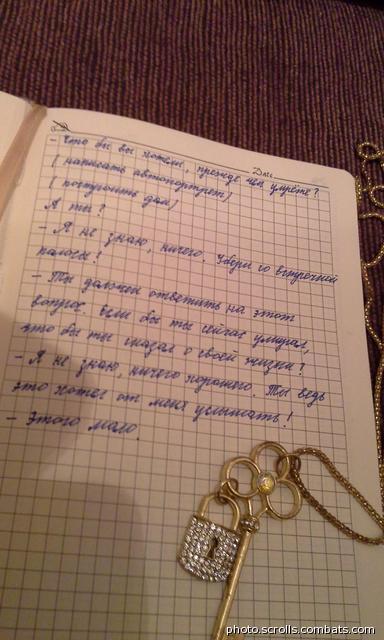 Дата
- Что бы вы хотели, прежде чем умрёте?
( написать автопортрет)
( построить дом)
А ты?
- Я не знаю, ничего. Убери со встречной
полосы!
- Ты должен ответить на этот
вопрос. Если бы ты сейчас умирал,
что бы ты сказал о своей жизни?
- Я не знаю, ничего хорошего. Ты ведь
это хотел от меня услышать!
- Этого мало.
photo.scrolls.combats.com